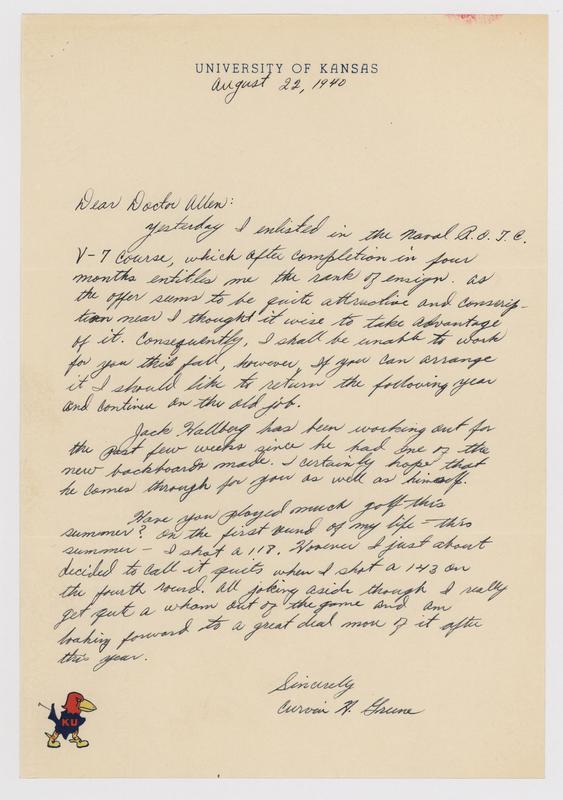 UNIVERSITY OF KANSAS
August 22, 1940
Dear Doctor Allen:
Yesterday I enlisted in the Naval R.O.T.C.
V-7 Course, which after completion in four
months entitles me the rank of ensign. As
the offer seems to be quite attractive and conscrip-
tion near I thought it wise to take advantage
of it. Consequently, I shall be unable to work
for you this fall, however, if you can arrange
it I should like to return the following year
and continue on the old job.
Jack Hallberg has been working out for
the past few weeks since he had one of the
new backboards made. I certainly hope that
he comes through for you as well as himself.
Have you played much golf this
summer? On the first round of my life - this
summer - I shot a 118. However I just about
decided to call it quits when I shot a 143 on
the fourth round. All joking aside though I really
get quit a wham out of the game and am
looking forward to a great deal more of it after
this year.
Sincerely
KU